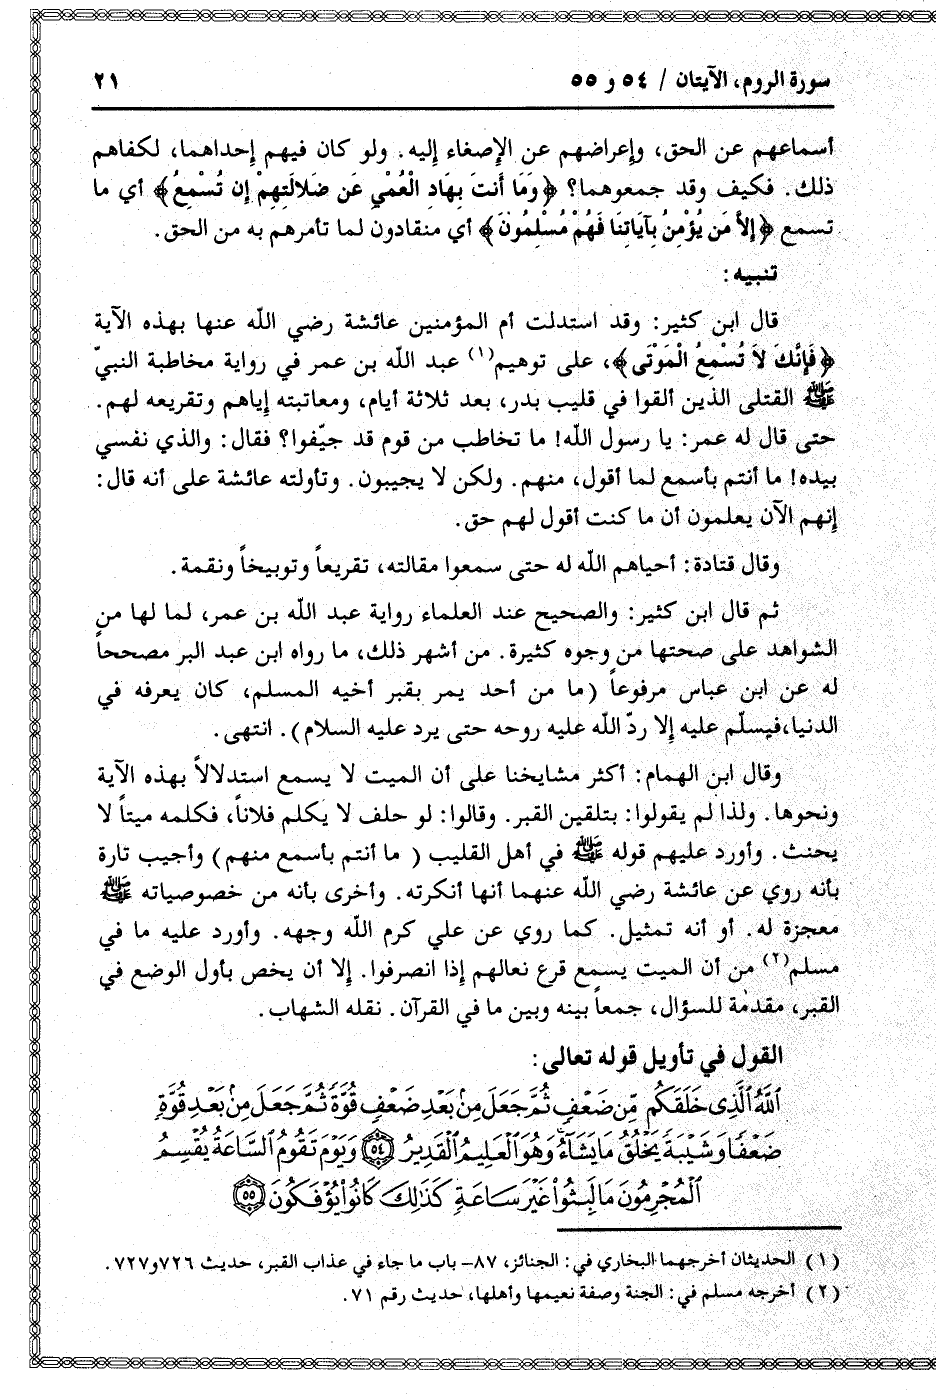 سورة الروم، الآيتان / ٥٤ و ٥٥ ٢١
أسماعهم عن الحق، وإعراضهم عن الإصغاء إليه. ولو كان فيهم إحداهما، لكفاهم
ذلك. فكيف وقد جمعوهما؟ ﴿وَمَا أَنتَ بِهَادِ الْعُمْيِ عَن ضَلَالَتِهِمْ إِن تُسْمِعُ﴾ أي ما
تسمع ﴿إِلاَّ مَن يُؤْمِنُ بِآيَاتِنَا فَهُمْ مُسْلِمُونَ﴾ أي منقادون لما تأمرهم به من الحق.
تنبيه:
قال ابن كثير: وقد استدلت أم المؤمنين عائشة رضي اللّه عنها بهذه الآية
﴿فَإِنَّكَ لاَ تُسْمِعُ الْمَوْتَى﴾، على توهيم(١) عبد اللّه بن عمر في رواية مخاطبة النبيّ
ﷺ القتلى الذين ألقوا في قليب بدر، بعد ثلاثة أيام، ومعاتبته إياهم وتقريعه لهم.
حتى قال له عمر: يا رسول اللّه! ما تخاطب من قوم قد جيّفوا؟ فقال: والذي نفسي
بيده! ما أنتم بأسمع لما أقول، منهم. ولكن لا يجيبون. وتأولته عائشة على أنه قال:
إنهم الآن يعلمون أن ما كنت أقول لهم حق.
وقال قتادة: أحياهم اللّه له حتى سمعوا مقالته، تقريعاً وتوبيخاً ونقمة.
ثم قال ابن كثير: والصحيح عند العلماء رواية عبد اللّه بن عمر، لما لها من
الشواهد على صحتها من وجوه كثيرة. من أشهر ذلك، ما رواه ابن عبد البر مصححاً
له عن ابن عباس مرفوعاً (ما من أحد يمر بقبر أخيه المسلم، كان يعرفه في
الدنيا،فيسلّم عليه إلا ردّ اللّه عليه روحه حتى يرد عليه السلام). انتهى.
وقال ابن الهمام: أكثر مشايخنا على أن الميت لا يسمع استدلالاً بهذه الآية
ونحوها. ولذا لم يقولوا: بتلقين القبر. وقالوا: لو حلف لا يكلم فلاناً، فكلمه ميتاً لا
يحنث. وأورد عليهم قوله ﷺ في أهل القليب ( ما أنتم بأسمع منهم) وأجيب تارة
بأنه روي عن عائشة رضي اللّه عنهما أنها أنكرته. وأخرى بأنه من خصوصياته ﷺ
معجزة له. أو أنه تمثيل. كما روي عن علي كرم اللّه وجهه. وأورد عليه ما في
مسلم(٢) من أن الميت يسمع قرع نعالهم إذا انصرفوا. إلا أن يخص بأول الوضع في
القبر، مقدمة للسؤال، جمعاً بينه وبين ما في القرآن. نقله الشهاب.
القول في تأويل قوله تعالى:
ٱللَّهُ ٱلَّذِى خَلَقَكُم مِّن ضَعْفٍ ثُمَّ جَعَلَ مِنۢ بَعْدِ ضَعْفٍ قُوَّةً ثُمَّ جَعَلَ مِنۢ بَعْدِ قُوَّةٍ
ضَعْفًا وَشَيْبَةً يَخْلُقُ مَا يَشَآءُ وَهُوَ ٱلْعَلِيمُ ٱلْقَدِيرُ ﴿٥٤﴾ وَيَوْمَ تَقُومُ ٱلسَّاعَةُ يُقْسِمُ
ٱلْمُجْرِمُونَ مَا لَبِثُوا۟ غَيْرَ سَاعَةٍ كَذَٰلِكَ كَانُوا۟ يُؤْفَكُونَ ﴿٥٥﴾
(١) الحديثان أخرجهما البخاري في: الجنائز، ٨٧– باب ما جاء في عذاب القبر، حديث ٧٢٦و٧٢٧.
(٢) أخرجه مسلم في: الجنة وصفة نعيمها وأهلها، حديث رقم ٧١.